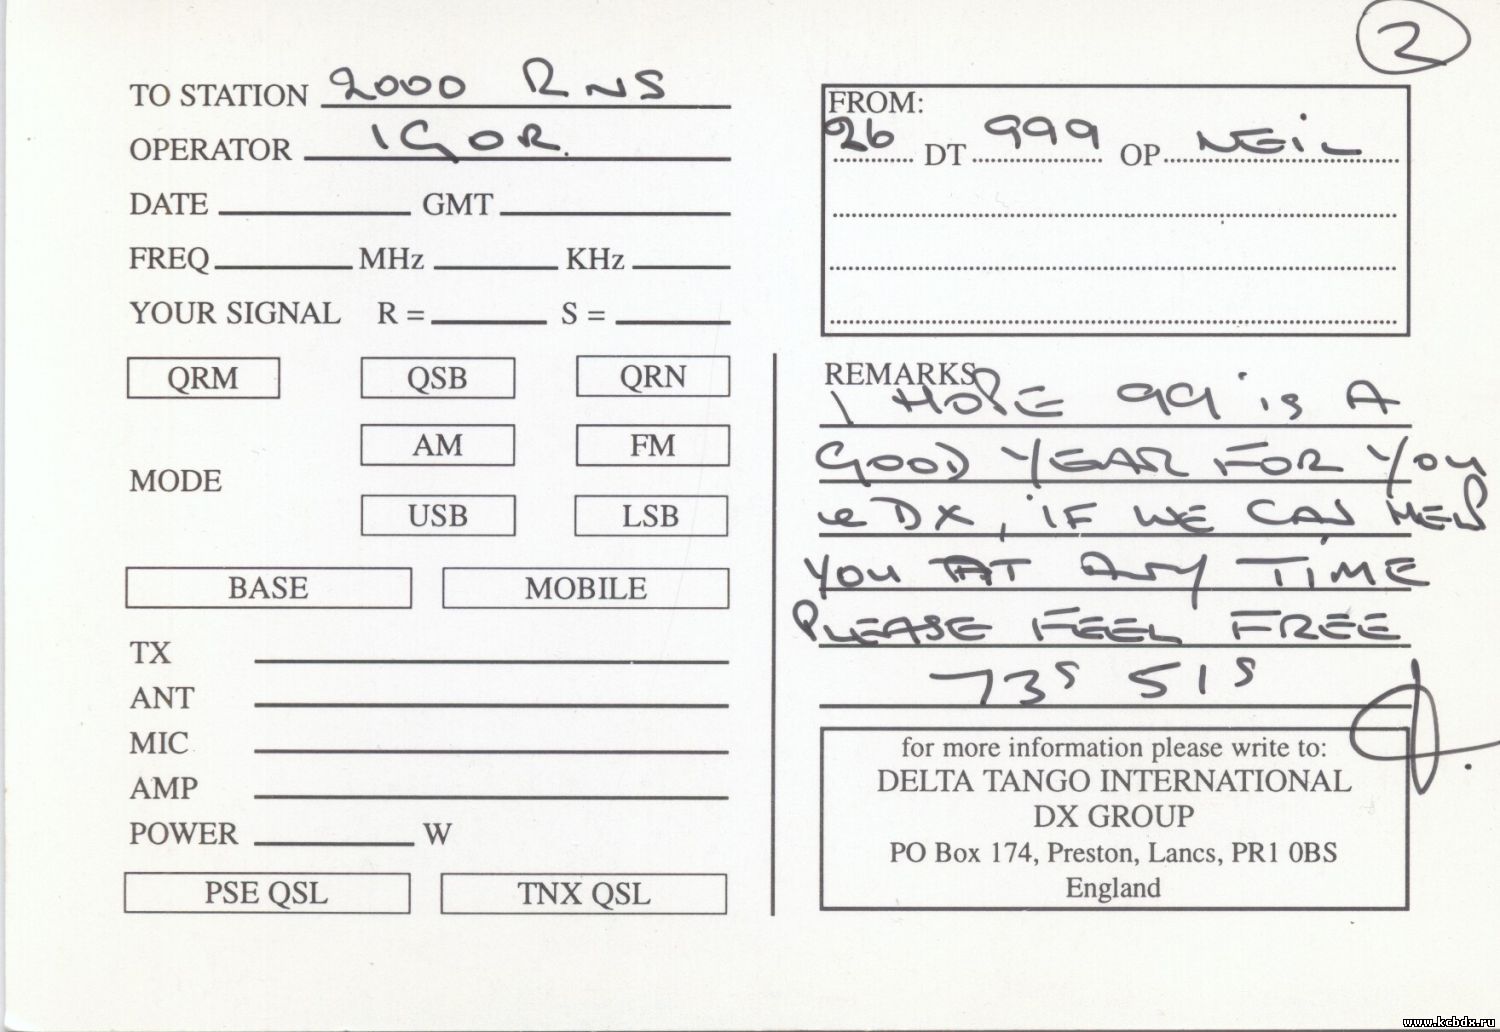 2
TO STATION 2000 RNS
OPERATOR IGOR.
DATE GMT
FREQ MHz KHz
YOUR SIGNAL R = S =
QRM QSB QRN
MODE
AM FM
USB LSB
BASE MOBILE
TX
ANT
MIC
AMP
POWER W
PSE QSL TNX QSL
FROM:
26 DT 999 OP NEiL
REMARKS
I HOPE 99 is A
GOOD YEAR FOR YOU
DX, iF WE CAN HELP
YOU AT ANY TiME
PLEASE FEEL FREE
73s 51s
for more information please write to:
DELTA TANGO INTERNATIONAL
DX GROUP
PO Box 174, Preston, Lancs, PR1 0BS
England
www.kcbdx.ru